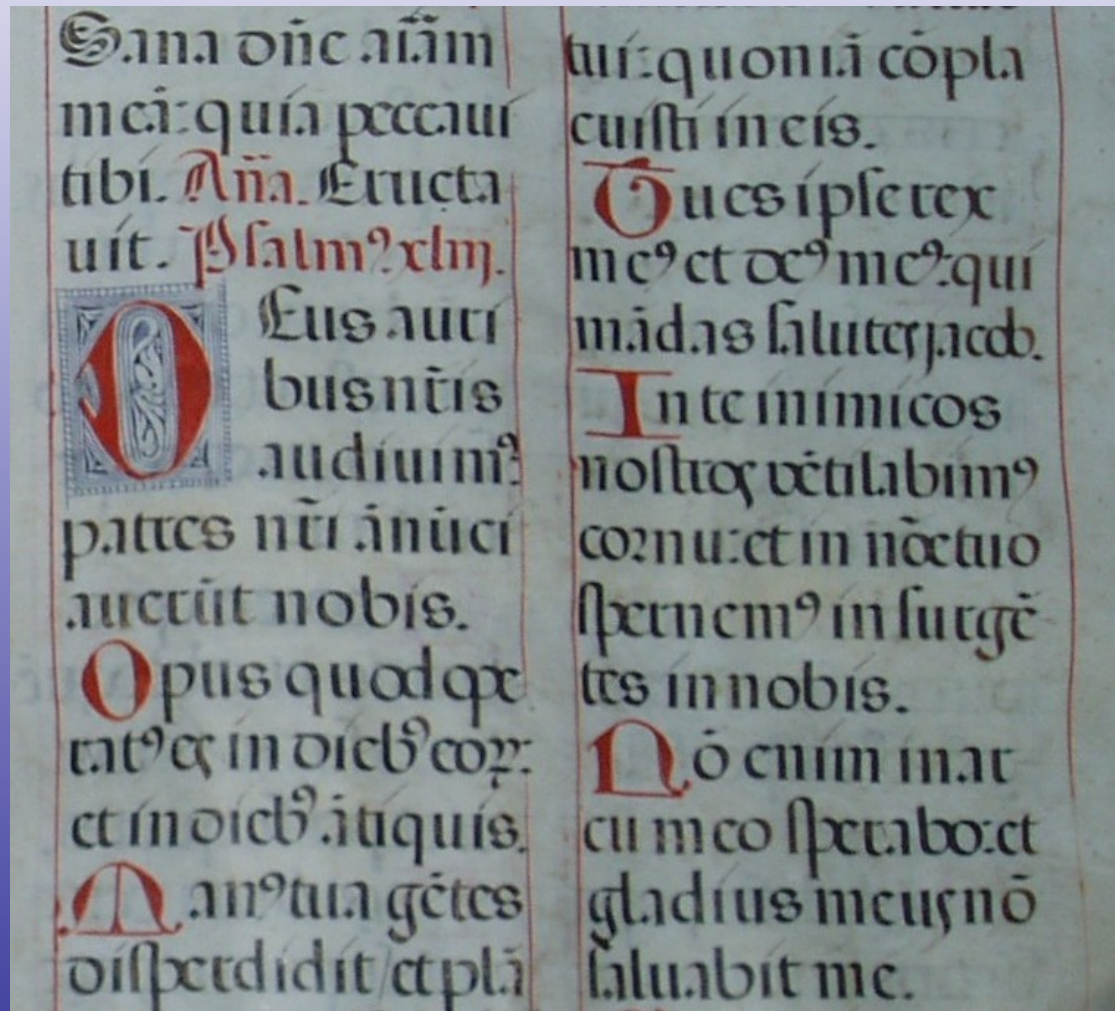 Sana dñe aĩam
meā: quia peccaui
tibi. Aña. Eructa
uit. Psalmꝰ xliij.
DEus auri
bus nr̃is
audiuimꝰ:
patres nr̃i ānūci
auerūt nobis.
Opus quod ope
ratꝰ es in diebꝰ eoꝝ:
et in diebꝰ ātiquis.
Manꝰ tua gẽtes
disperdidit et plā
tui: quoniā cōpla
cuisti in eis.
Tu es ipse rex
meꝰ et deꝰ meꝰ: qui
mādas salutes jacob.
In te inimicos
nostros vẽtilabimꝰ
cornu: et in nōe tuo
spernemꝰ insurgẽ
tes in nobis.
Nō enim in ar
cu meo sperabo: et
gladius meus nō
saluabit me.